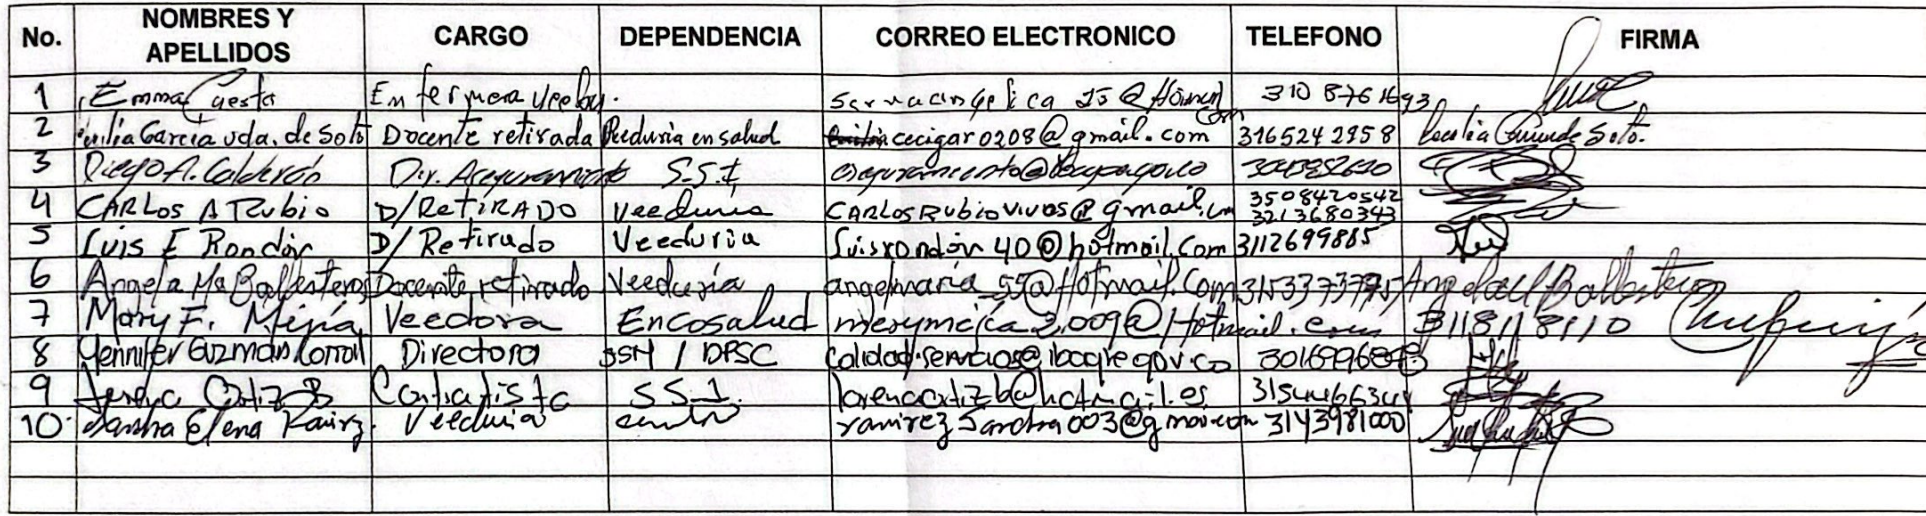 No. NOMBRES Y APELLIDOS CARGO DEPENDENCIA CORREO ELECTRONICO TELEFONO FIRMA
1 Emma Cuesta Enfermera Veedu. 310 8761693
2 Cecilia García vda. de Soto Docente retirada Veeduria en salud cecigar0208@gmail.com 3165242958 Cecilia García de Soto.
3 Diego A. Calderón Dir. Aseguramiento S.S.I
4 CARLOS A RUbio D/RetiRADO veeduria CARLOSRUbioVivas@gmail.com 3508420542 3213680343
5 Luis E Rondón D/ Retirado Veeduria luisrondon40@hotmail.com 3112699885
6 Angela Ma Ballesteros Docente retirado Veeduría angelmaria_55@Hotmail.Com 3153373795 Angela M Ballesteros
7 Mary F. Mejía Veedora Encosalud merymejia2,009@Hotmail.com 3118118110
8 Yennifer Guzman Directora SSM / DPSC calidadservicios@ibague.gov.co
9 Lorena Ortiz B Contratista S.S.I. lorenaortizb@hotmail.es
10. Sandra Elena Ramirz. Veeduria ramirezSandra003@gmail.com 3143981000